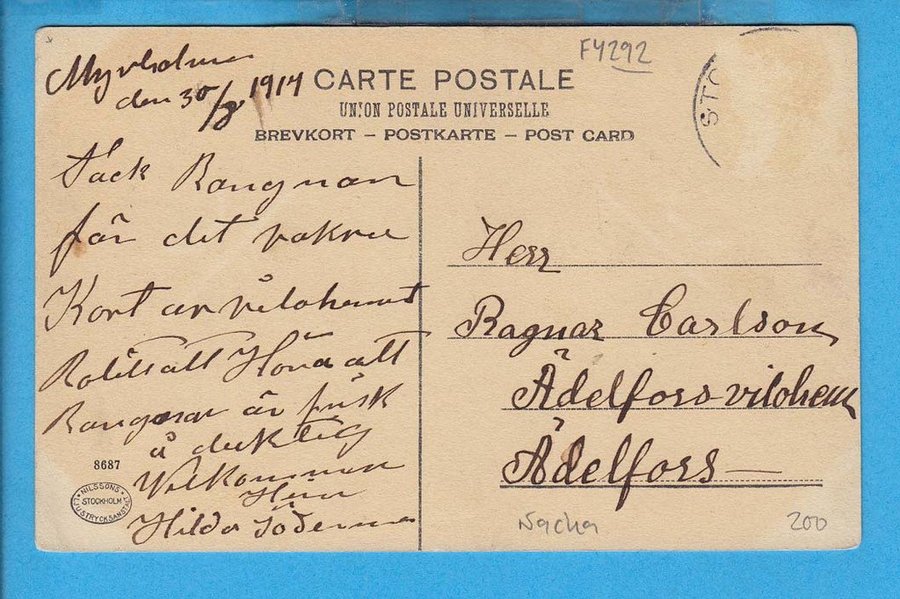 F4292
Myrholmen
den 30/8 1914
CARTE POSTALE
UNION POSTALE UNIVERSELLE
BREVKORT – POSTKARTE – POST CARD
STO
Tack Rangnar
för det vakra
Kort av vilohemmet
Rolitt att Höra att
Rangnar är frisk
å duktig
Velkommen
Hem
Hilda Söderman
Herr
Ragnar Carlson
Ädelfors vilohem
Ädelfors
8687
NILSSONS LJUSTRYCKSANSTALT
STOCKHOLM
Nacka
200